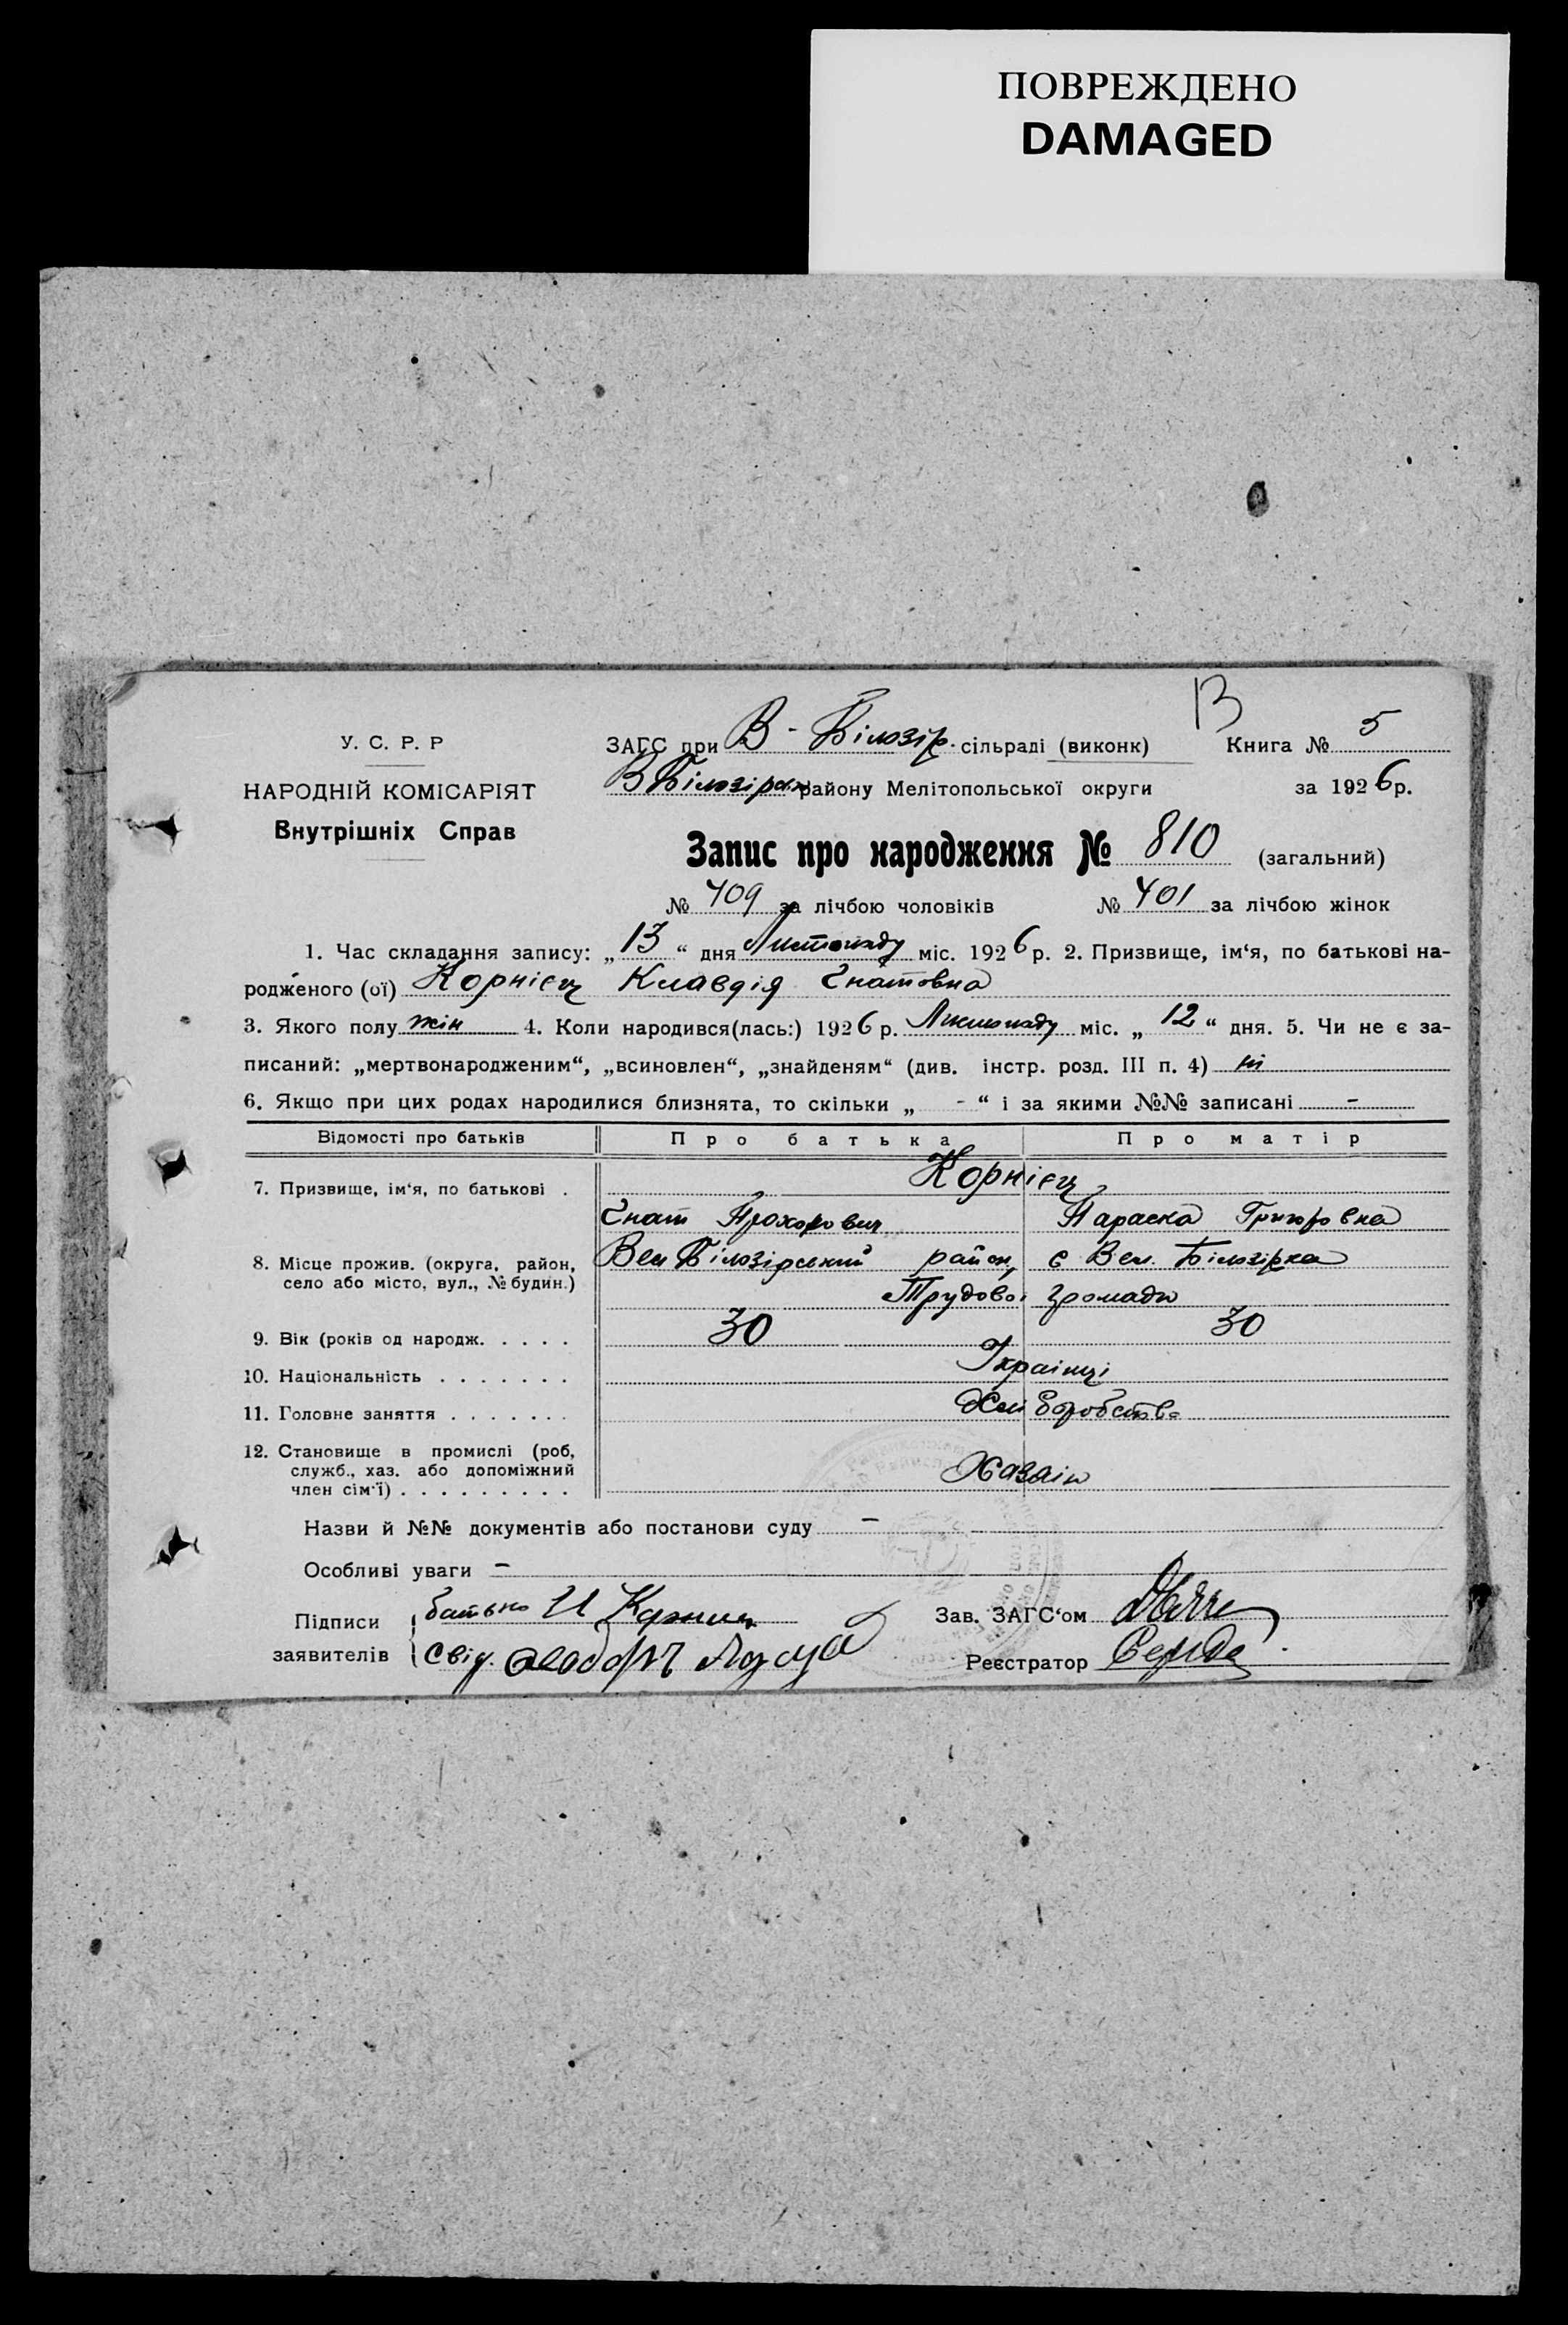 ПОВРЕЖДЕНО
DAMAGED
13
У. С. Р. Р
НАРОДНІЙ КОМІСАРІЯТ
Внутрішніх Справ
ЗАГС при В-Білозір. сільраді (виконк) Книга № 5
В Білозірськ району Мелітопольської округи за 1926 р.
Запис про народження № 810 (загальний)
№ 409 за лічбою чоловіків № 401 за лічбою жінок
1. Час складання запису: „13“ дня Листопаду міс. 1926 р. 2. Призвище, ім‘я, по батькові на-
родженого (ої) Корнієц Клавдія Гнатовна
3. Якого полу жін 4. Коли народився(лась:) 1926 р. Листопаду міс. „12“ дня. 5. Чи не є за-
писаний: „мертвонародженим“, „всиновлен“, „знайденям“ (див. інстр. розд. III п. 4) ні
6. Якщо при цих родах народилися близнята, то скільки „ - “ і за якими №№ записані -
Відомості про батьків Про батька Про матір
7. Призвище, ім‘я, по батькові . Корнієц
Гнат Прохорович Параска Григоровна
8. Місце прожив. (округа, район, село або місто, вул., № будин.) Вел Білозірський район, с Вел. Білозірка
Трудової громади
9. Вік (років од народж. . . . . 30 30
10. Національність . . . . . . . Українці
11. Головне заняття . . . . . . . Хліборобство
12. Становище в промислі (роб, служб., хаз. або допоміжний член сім‘ї) . . . . . . . . . Хазяін
Назви й №№ документів або постанови суду -
Особливі уваги -
Підписи заявителів батько И Корниец
Свід.
Зав. ЗАГС‘ом
Реєстратор Середа